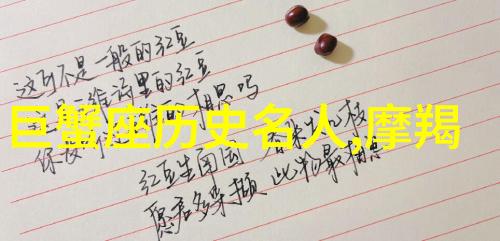 这可不是一般的红豆
诗里的红豆
相思吗
巨蟹座历史名人,摩羯
红豆生南国 春来发几枝
愿君多采撷 此物最相思